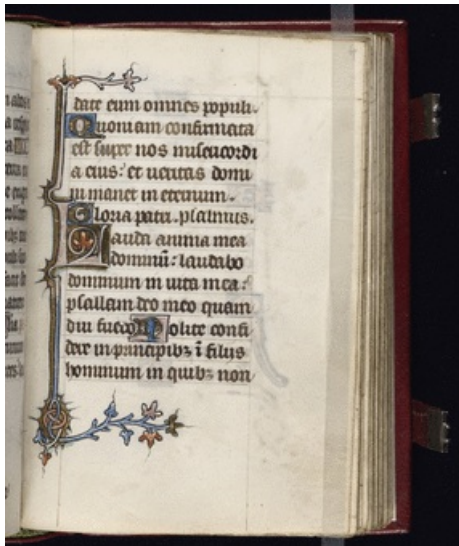 date eum omnes populi.
Quoniam confirmata
est super nos misericordi
a eius: et ueritas domi
ni manet in eternum.
Gloria patri. psalmus.
Lauda anima mea
dominũ: laudabo
dominum in uita mea:
psallam deo meo quam
diu fuero Nolite confi
dere in principibꝫ ĩ filiis
hominum in quibꝫ non